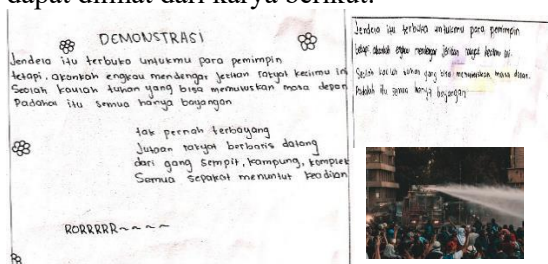 dapat dilihat dari karya berikut.
DEMONSTRASI
Jendela itu terbuka untukmu para pemimpin
tetapi, akankah engkau mendengar jeritan rakyat kecilmu ini
Seolah kaulah tuhan yang bisa memutuskan masa depan
Padahal itu semua hanya bayangan
tak pernah terbayang
Jutaan rakyat berbaris datang
dari gang sempit, kampung, komplek
Semua sepakat menuntut keadilan
RORRRRR~~~~
Jendela itu terbuka untukmu para pemimpin
tetapi, akankah engkau mendengar jeritan rakyat kecilmu ini.
Seolah kaulah tuhan yang bisa memutuskan masa depan.
Padahal itu semua hanya bayangan